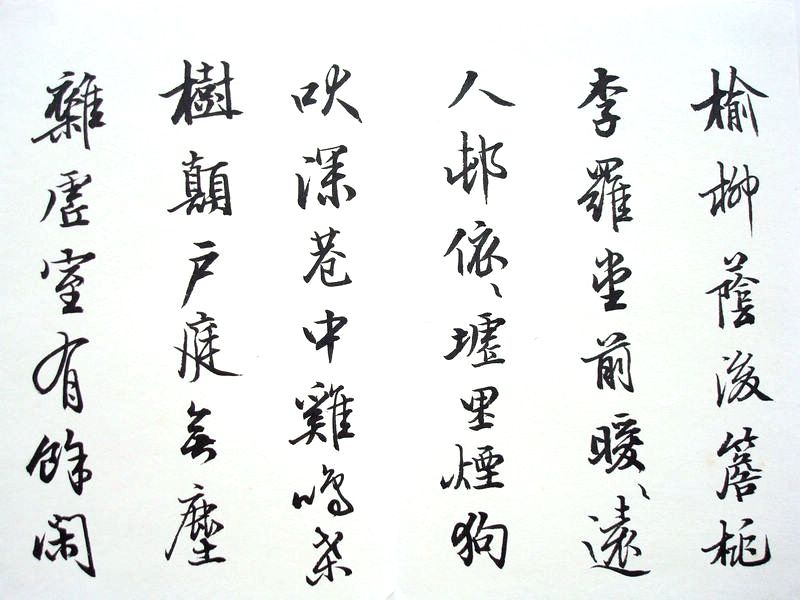 榆柳蔭後簷桃
李羅堂前曖〻遠
人邨依〻墟里煙狗
吠深巷中雞鳴桑
樹顛戶庭無塵
雜虛室有餘閑